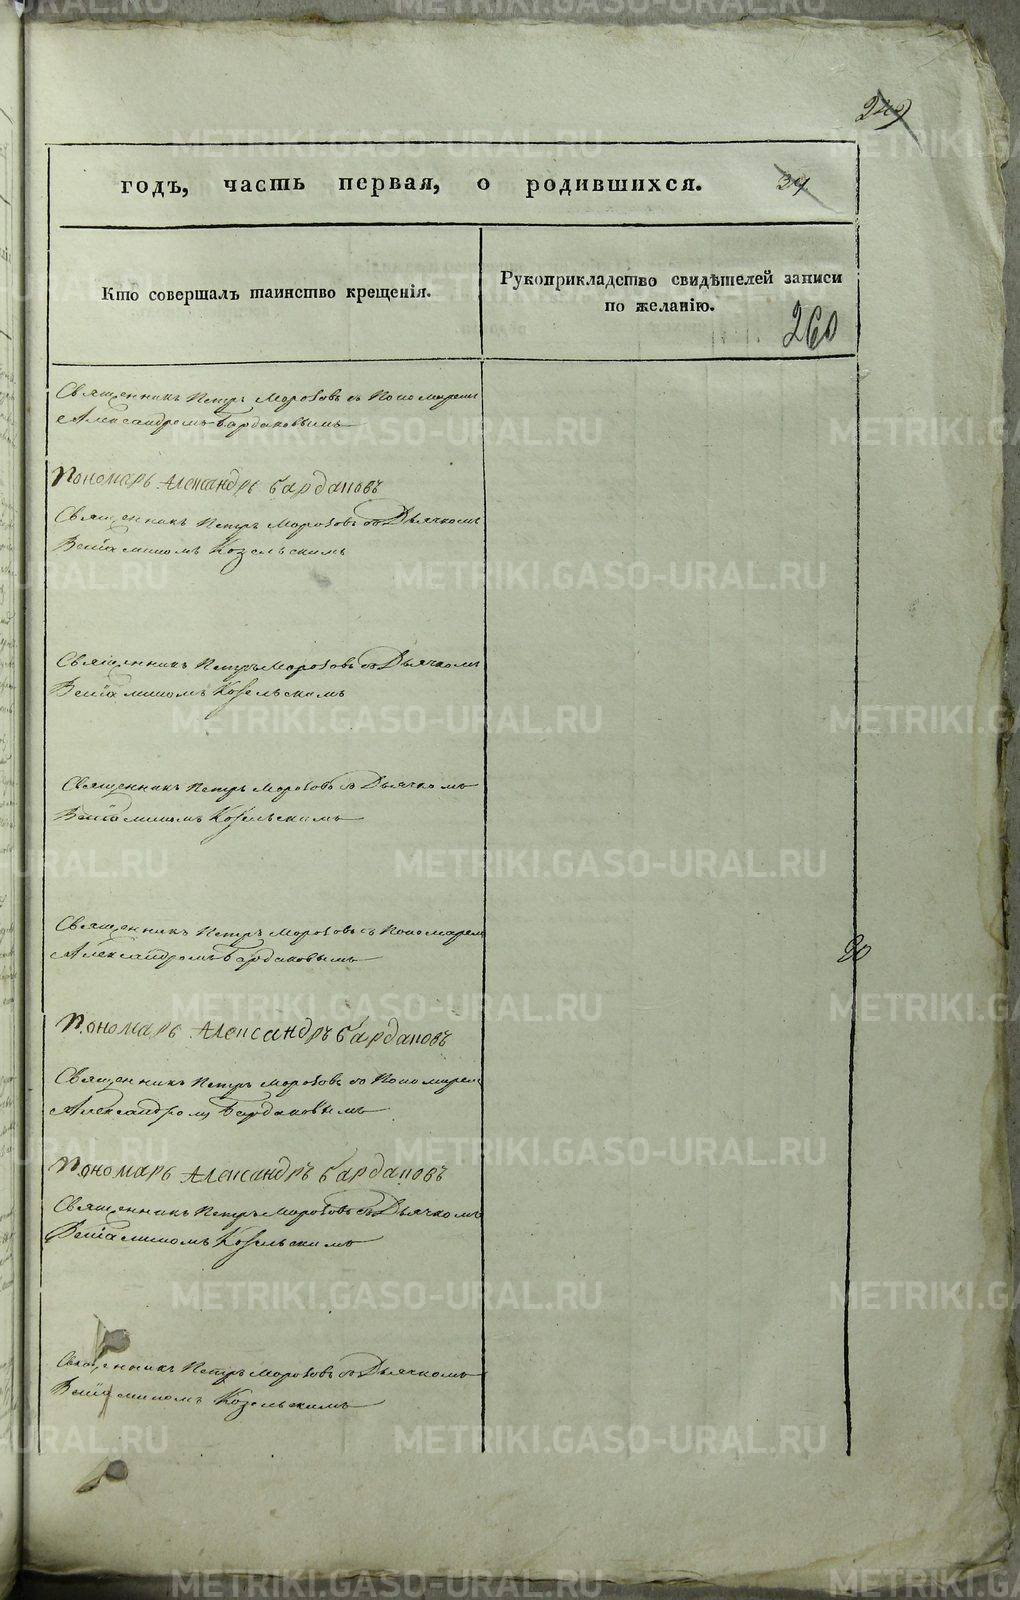 249
годъ, часть первая, о родившихся. 34
Кто совершалъ таинство крещенія.
Рукоприкладство свидѣтелей записи
по желанію.
260
Священникъ Петръ Морозовъ съ Пономаремъ
Александромъ Бардаковымъ
Пономарь Александръ Бардаковъ
Священникъ Петръ Морозовъ съ Дьячкомъ
Веніаминомъ Козельскимъ
Священникъ Петръ Морозовъ съ Дьячкомъ
Веніаминомъ Козельскимъ
Священникъ Петръ Морозовъ съ Дьячкомъ
Веніаминомъ Козельскимъ
Священникъ Петръ Морозовъ съ Пономаремъ
Александромъ Бардаковымъ
Пономарь Александръ Бардаковъ
Священникъ Петръ Морозовъ съ Пономаремъ
Александромъ Бардаковымъ
Пономарь Александръ Бардаковъ
Священникъ Петръ Морозовъ съ Дьячкомъ
Веніаминомъ Козельскимъ
Священникъ Петръ Морозовъ съ Дьячкомъ
Веніаминомъ Козельскимъ
METRIKI.GASO-URAL.RU